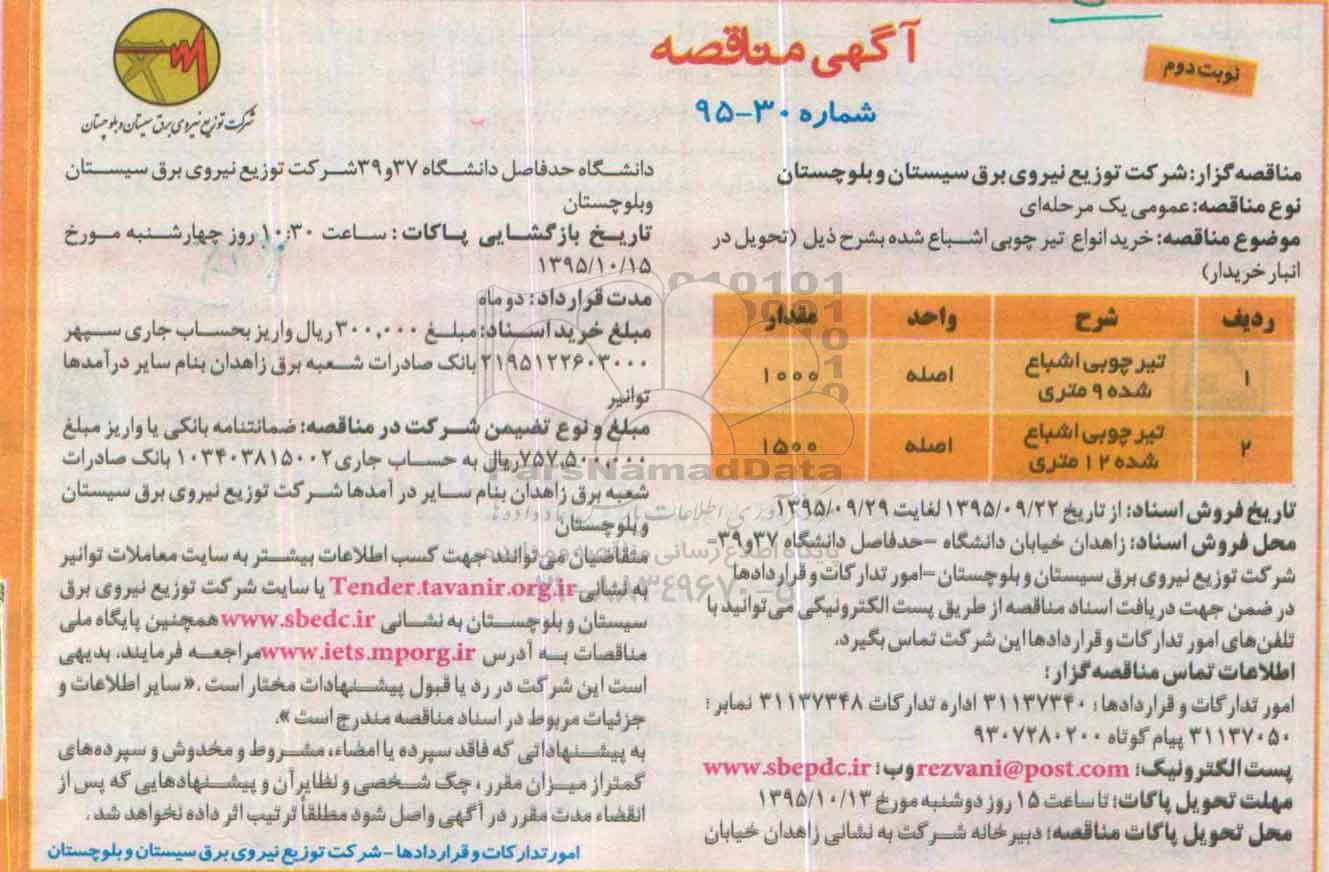 آگهی مناقصه
شماره ۳۰-۹۵
نوبت دوم
شرکت توزیع نیروی برق سیستان و بلوچستان
مناقصه گزار: شرکت توزیع نیروی برق سیستان و بلوچستان
نوع مناقصه: عمومی یک مرحله‌ای
موضوع مناقصه: خرید انواع تیر چوبی اشباع شده بشرح ذیل (تحویل در
انبار خریدار)
ردیف شرح واحد مقدار
۱ تیر چوبی اشباع شده ۹ متری اصله ۱۰۰۰
۲ تیر چوبی اشباع شده ۱۲ متری اصله ۱۵۰۰
تاریخ فروش اسناد: از تاریخ ۱۳۹۵/۰۹/۲۲ لغایت ۱۳۹۵/۰۹/۲۹
محل فروش اسناد: زاهدان خیابان دانشگاه -حدفاصل دانشگاه ۳۷و۳۹-
شرکت توزیع نیروی برق سیستان و بلوچستان-امور تدارکات و قراردادها
در ضمن جهت دریافت اسناد مناقصه از طریق پست الکترونیکی می‌توانید با
تلفن‌های امور تدارکات و قراردادها این شرکت تماس بگیرد.
اطلاعات تماس مناقصه گزار:
امور تدارکات و قراردادها: ۳۱۱۳۷۳۴۰ اداره تدارکات ۳۱۱۳۷۳۴۸ نمابر:
۳۱۱۳۷۰۵۰ پیام کوتاه ۹۳۰۷۲۸۰۲۰۰
پست الکترونیک: rezvani@post.com وب: www.sbepdc.ir
مهلت تحویل پاکات: تا ساعت ۱۵ روز دوشنبه مورخ ۱۳۹۵/۱۰/۱۳
محل تحویل پاکات مناقصه: دبیرخانه شرکت به نشانی زاهدان خیابان
دانشگاه حدفاصل دانشگاه ۳۷و۳۹ شرکت توزیع نیروی برق سیستان
وبلوچستان
تاریخ بازگشایی پاکات: ساعت ۱۰:۳۰ روز چهارشنبه مورخ
۱۳۹۵/۱۰/۱۵
مدت قرارداد: دو ماه
مبلغ خرید اسناد: مبلغ ۳۰۰,۰۰۰ ریال واریز بحساب جاری سپهر
۲۱۹۵۱۲۲۶۰۳۰۰۰ بانک صادرات شعبه برق زاهدان بنام سایر درآمدها
توانیر
مبلغ و نوع تضیمن شرکت در مناقصه: ضمانتنامه بانکی یا واریز مبلغ
۷۵۷,۵۰۰,۰۰۰ریال به حساب جاری ۱۰۳۴۰۳۸۱۵۰۰۲ بانک صادرات
شعبه برق زاهدان بنام سایر در آمدها شرکت توزیع نیروی برق سیستان
و بلوچستان
متقاضیان می‌توانند جهت کسب اطلاعات بیشتر به سایت معاملات توانیر
به نشانی Tender.tavanir.org.ir یا سایت شرکت توزیع نیروی برق
سیستان و بلوچستان به نشانی www.sbedc.ir همچنین پایگاه ملی
مناقصات به آدرس www.iets.mporg.ir مراجعه فرمایند. بدیهی
است این شرکت در رد یا قبول پیشنهادات مختار است .«سایر اطلاعات و
جزئیات مربوط در اسناد مناقصه مندرج است ».
به پیشنهاداتی که فاقد سپرده یا امضاء، مشروط و مخدوش و سپرده‌های
کمتراز میزان مقرر ، چک شخصی و نظایر آن و پیشنهادهایی که پس از
انقضاء مدت مقرر در آگهی واصل شود مطلقاً ترتیب اثر داده نخواهد شد .
امور تدارکات و قراردادها -شرکت توزیع نیروی برق سیستان و بلوچستان
ParsNamadData